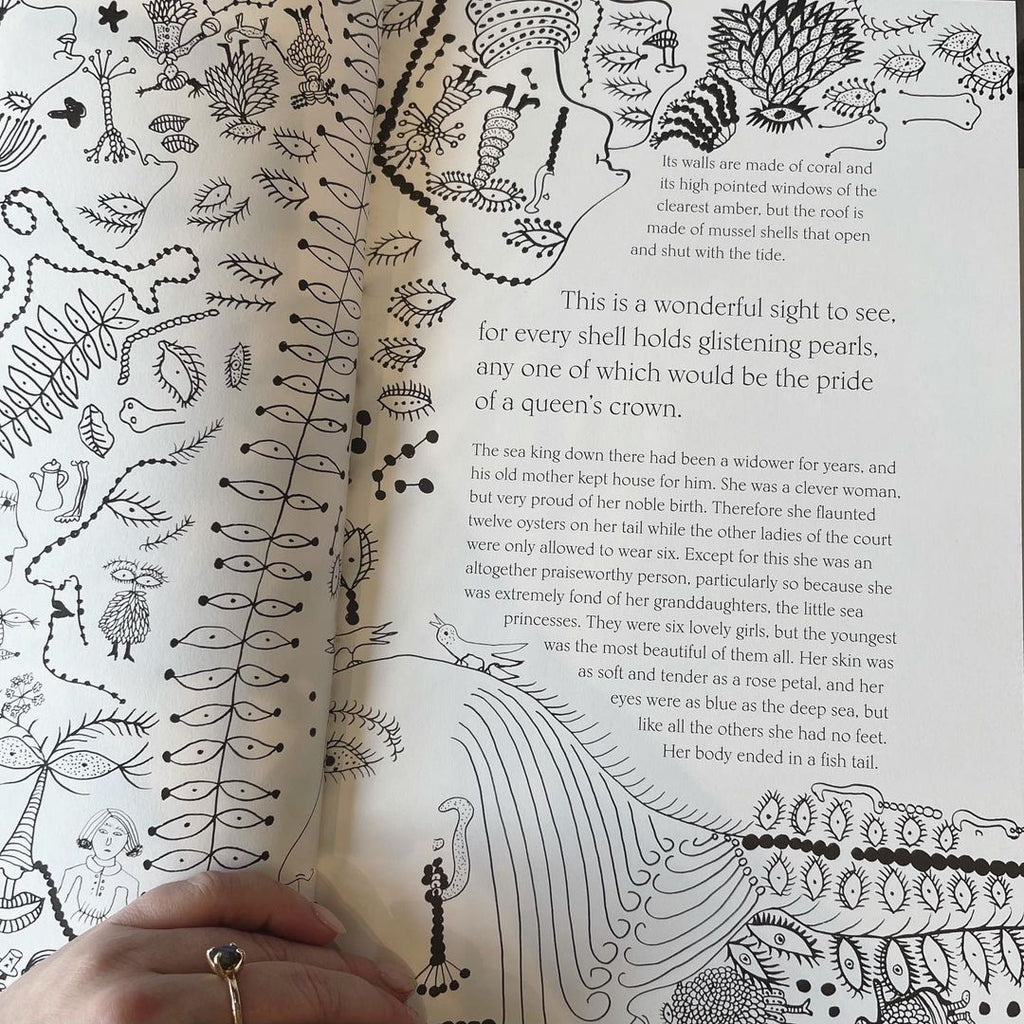 Its walls are made of coral and
its high pointed windows of the
clearest amber, but the roof is
made of mussel shells that open
and shut with the tide.
This is a wonderful sight to see,
for every shell holds glistening pearls,
any one of which would be the pride
of a queen's crown.
The sea king down there had been a widower for years, and
his old mother kept house for him. She was a clever woman,
but very proud of her noble birth. Therefore she flaunted
twelve oysters on her tail while the other ladies of the court
were only allowed to wear six. Except for this she was an
altogether praiseworthy person, particularly so because she
was extremely fond of her granddaughters, the little sea
princesses. They were six lovely girls, but the youngest
was the most beautiful of them all. Her skin was
as soft and tender as a rose petal, and her
eyes were as blue as the deep sea, but
like all the others she had no feet.
Her body ended in a fish tail.